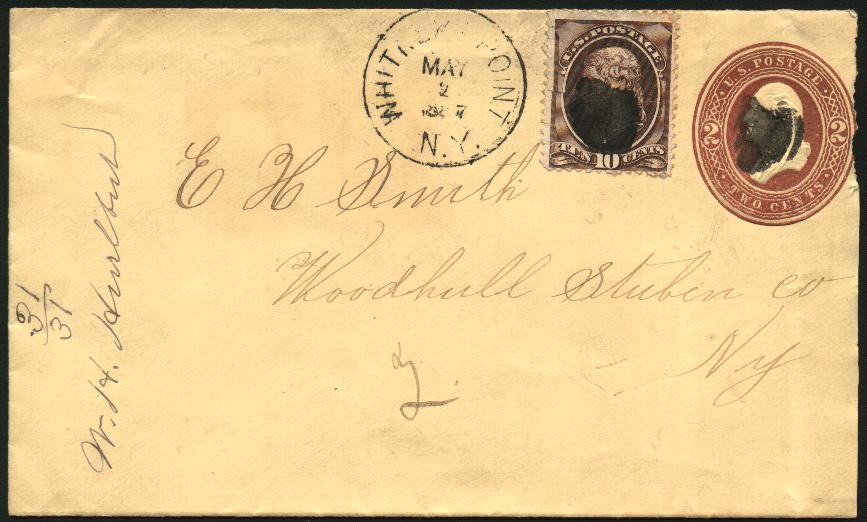 WHITNEY'S POINT
MAY
2
N.Y.
U.S. POSTAGE
TEN 10 CENTS
U.S. POSTAGE
2 2
TWO CENTS
E H Smith
Woodhull Stuben co
Ny
W. H. Hurlbut
31
31